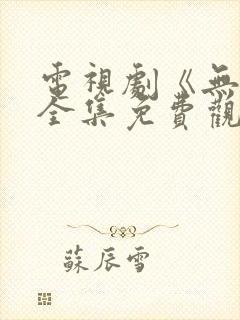 電視劇《無
全集免費觀
蘇辰雪